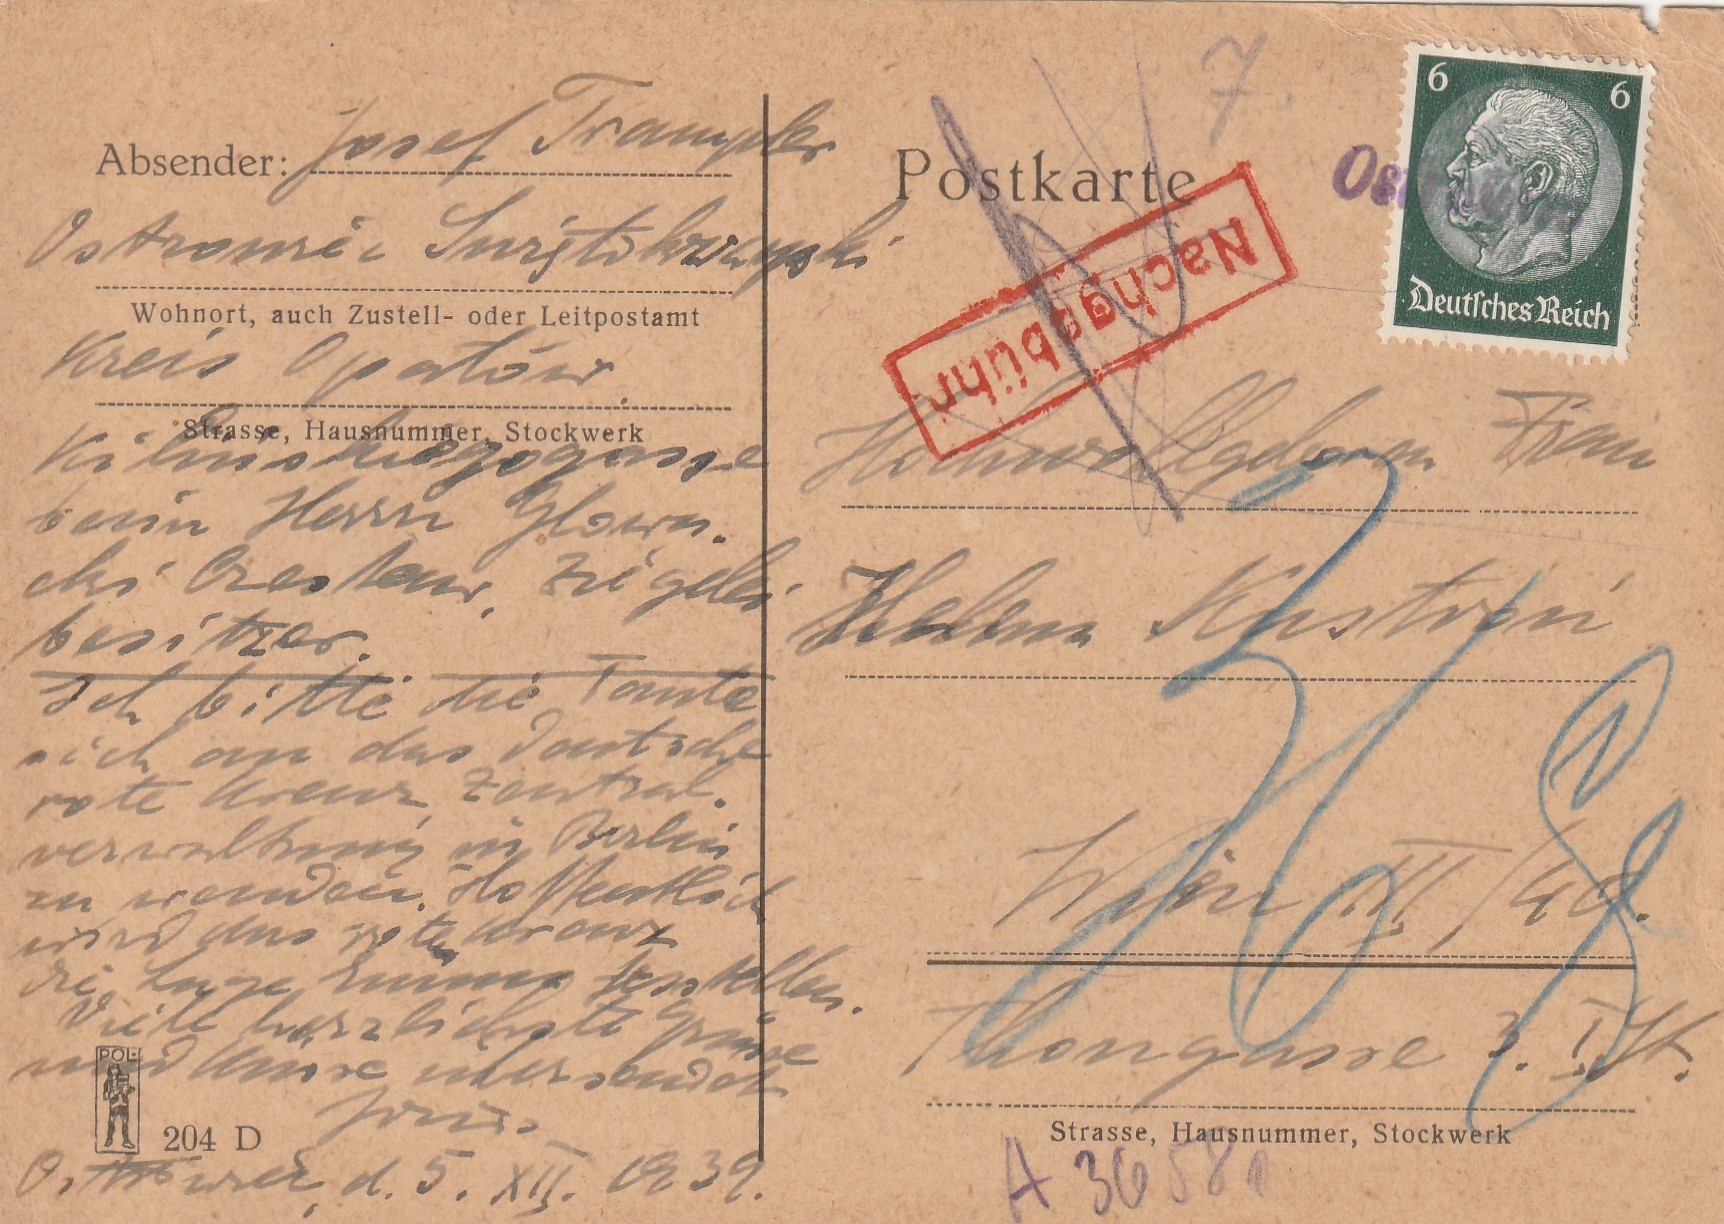 Absender: Josef Trampler
Ostrowiec Świętokrzyski
Wohnort, auch Zustell- oder Leitpostamt
Kreis Opatów
Strasse, Hausnummer, Stockwerk
Kilinskiegogasse
beim Herrn Glowa-
cki Czesław, Ziegelei
besitzer.
Ich bitte die Tante
sich an das Deutsche
rote Kreuz, Zentral-
verwaltung in Berlin
zu wenden. Hoffentlich
wird das rote Kreuz
die Lage feststellen.
Viele herzlichste Grüsse
und Küsse übersendet
POL
204 D
Ostrowiec, d. 5. XII. 1939.
Postkarte
7.
6 6
Deutsches Reich
Ost
Nachgebühr
Hochwohlgeboren Frau
Helena
Wien
Thongasse 3. I. St.
Strasse, Hausnummer, Stockwerk
A 36581